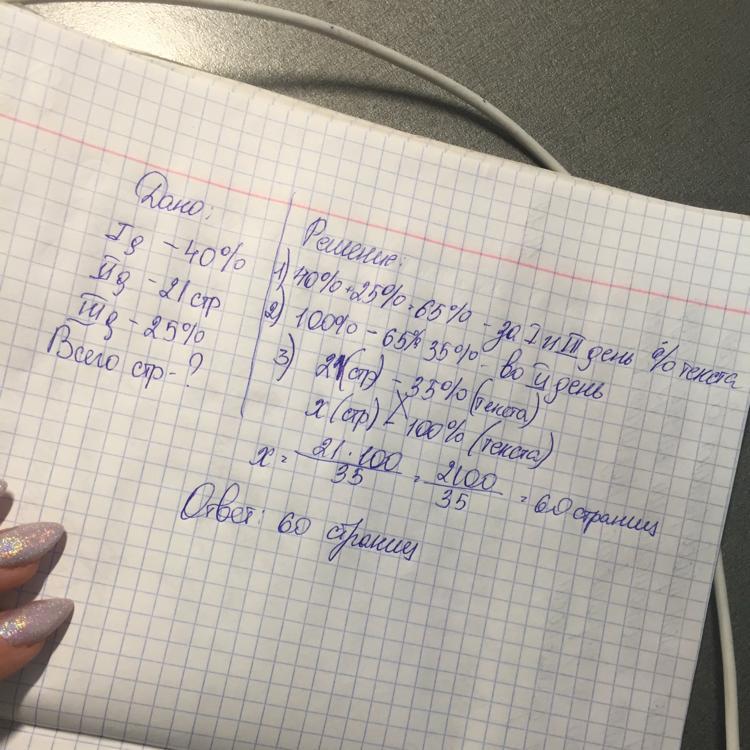 Дано:
I д - 40%
II д - 21 стр
III д - 25%
Всего стр - ?
Решение:
1) 40% + 25% = 65% - за I и III день % текста
2) 100% - 65% = 35% - во II день
3) 21 (стр) - 35% (текста)
x (стр) - 100% (текста)
x = 21 · 100 / 35 = 2100 / 35 = 60 страниц
Ответ: 60 страниц